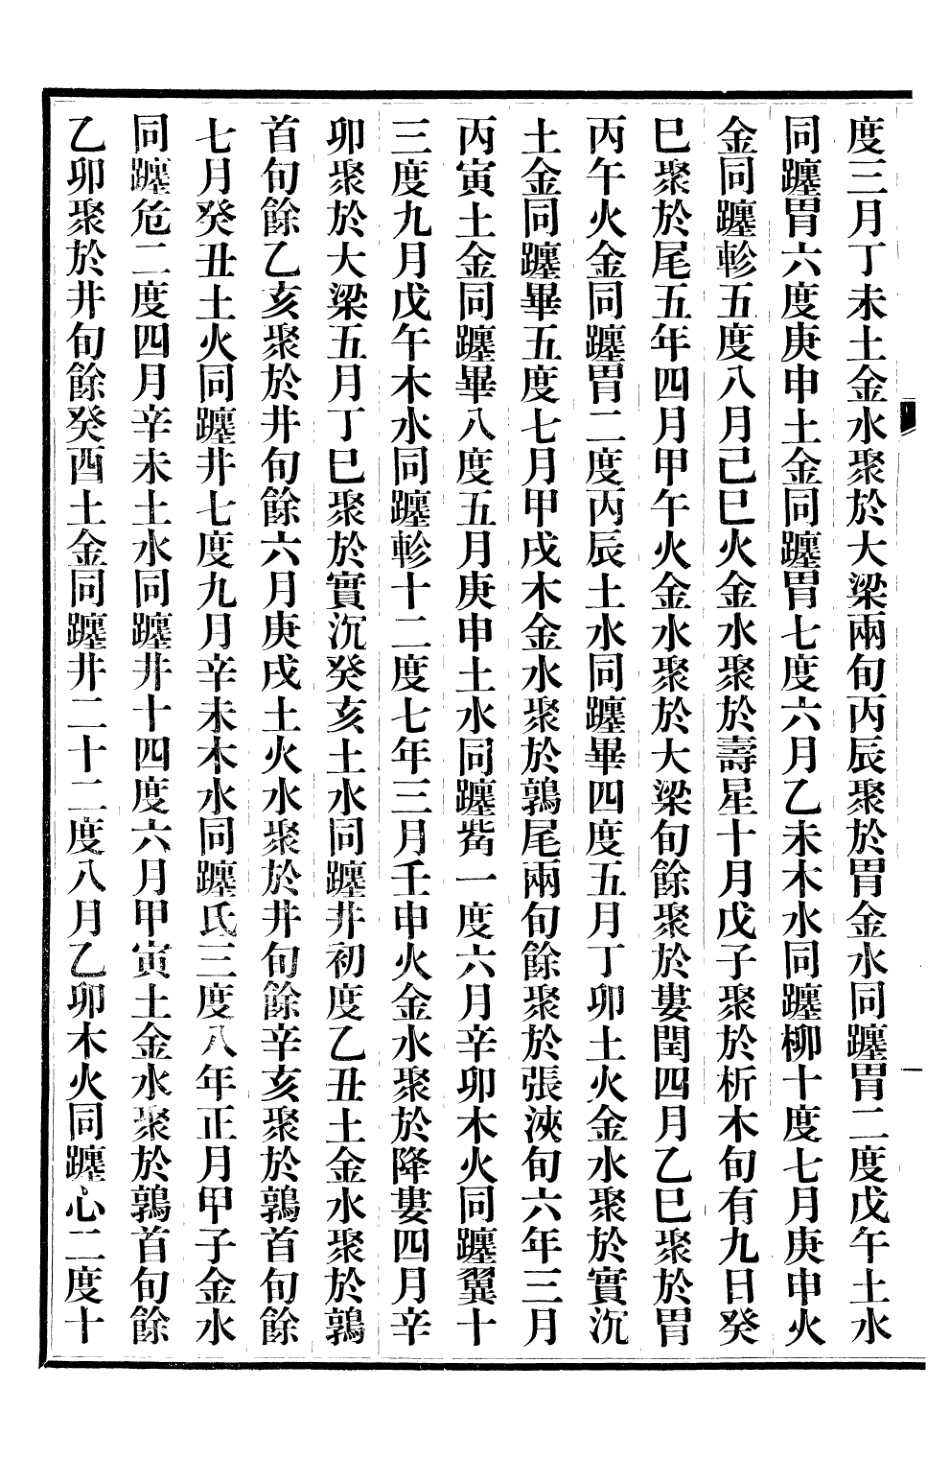 度三月丁未土金水聚於大梁兩旬丙辰聚於胃金水同躔胃二度戊午土水
同躔胃六度庚申土金同躔胃七度六月乙未木水同躔柳十度七月庚申火
金同躔軫五度八月己巳火金水聚於壽星十月戊子聚於析木旬有九日癸
巳聚於尾五年四月甲午火金水聚於大梁旬餘聚於婁閏四月乙巳聚於胃
丙午火金同躔胃二度丙辰土水同躔畢四度五月丁卯土火金水聚於實沉
土金同躔畢五度七月甲戌木金水聚於鶉尾兩旬餘聚於張浹旬六年三月
丙寅土金同躔畢八度五月庚申土水同躔觜一度六月辛卯木火同躔翼十
三度九月戊午木水同躔軫十二度七年三月壬申火金水聚於降婁四月辛
卯聚於大梁五月丁巳聚於實沉癸亥土水同躔井初度乙丑土金水聚於鶉
首旬餘乙亥聚於井旬餘六月庚戌土火水聚於井旬餘辛亥聚於鶉首旬餘
七月癸丑土火同躔井七度九月辛未木水同躔氐三度八年正月甲子金水
同躔危二度四月辛未土水同躔井十四度六月甲寅土金水聚於鶉首旬餘
乙卯聚於井旬餘癸酉土金同躔井二十二度八月乙卯木火同躔心二度十